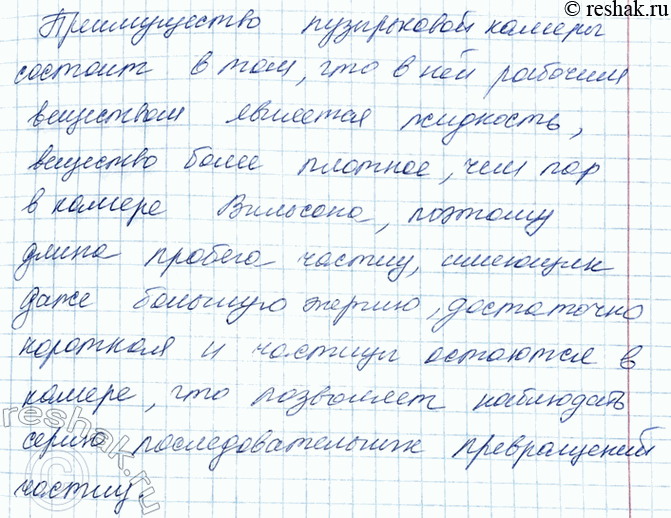 © reshak.ru
Преимущество пузырьковой камеры
состоит в том, что в ней рабочим
веществом является жидкость,
вещество более плотное, чем пар
в камере Вильсона, поэтому
длина пробега частиц, имеющих
даже большую энергию, достаточно
короткая и частицы остаются в
камере, что позволяет наблюдать
серию последовательных превращений
частиц.
reshak.ru